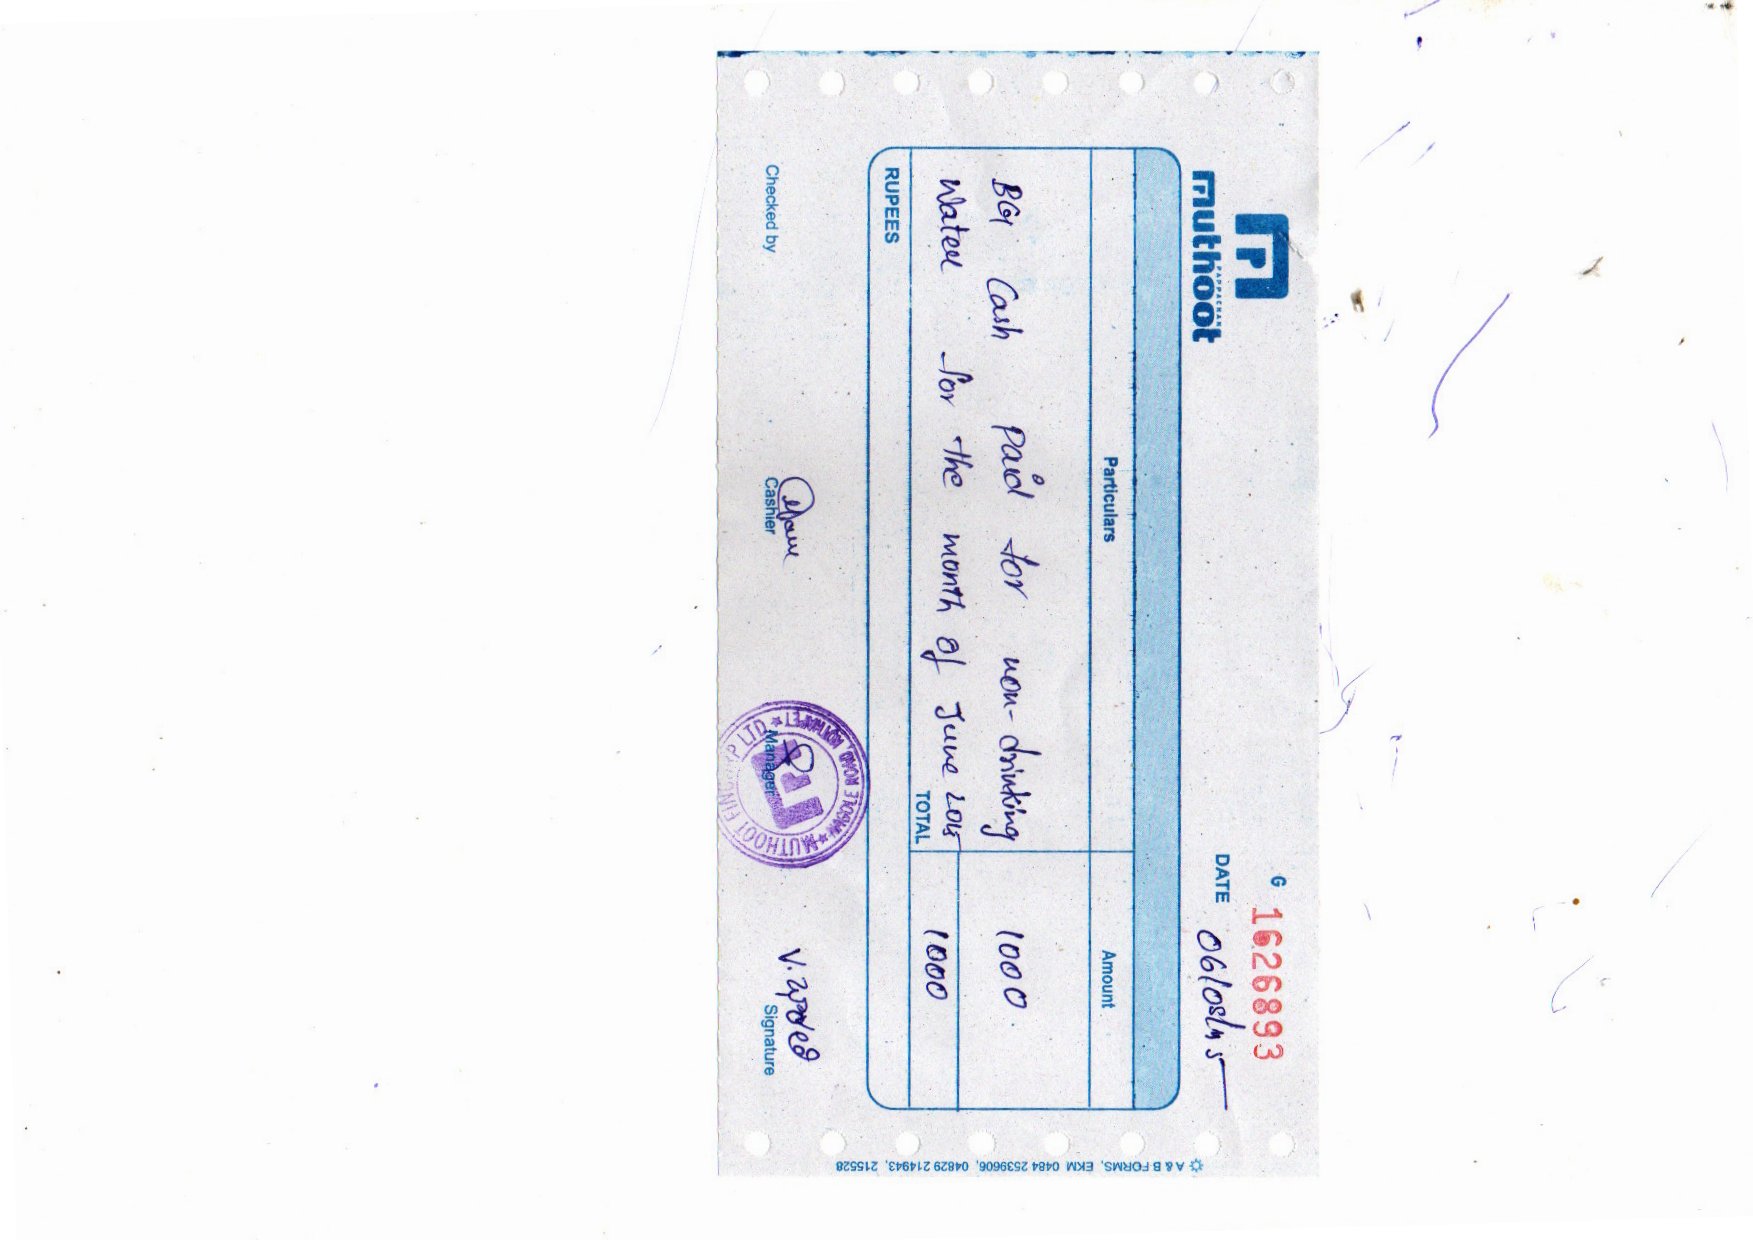 muthoot
PAPPACHAN
G 1626893
DATE 06/08/15
Particulars Amount
BG1 Cash paid for non-drinking 1000
Water for the month of June 2015
TOTAL 1000
RUPEES
Checked by Cashier Manager Signature
MUTHOOT FINCORP LTD
A & B FORMS, EKM 0484 2539606, 04829 214943, 215528